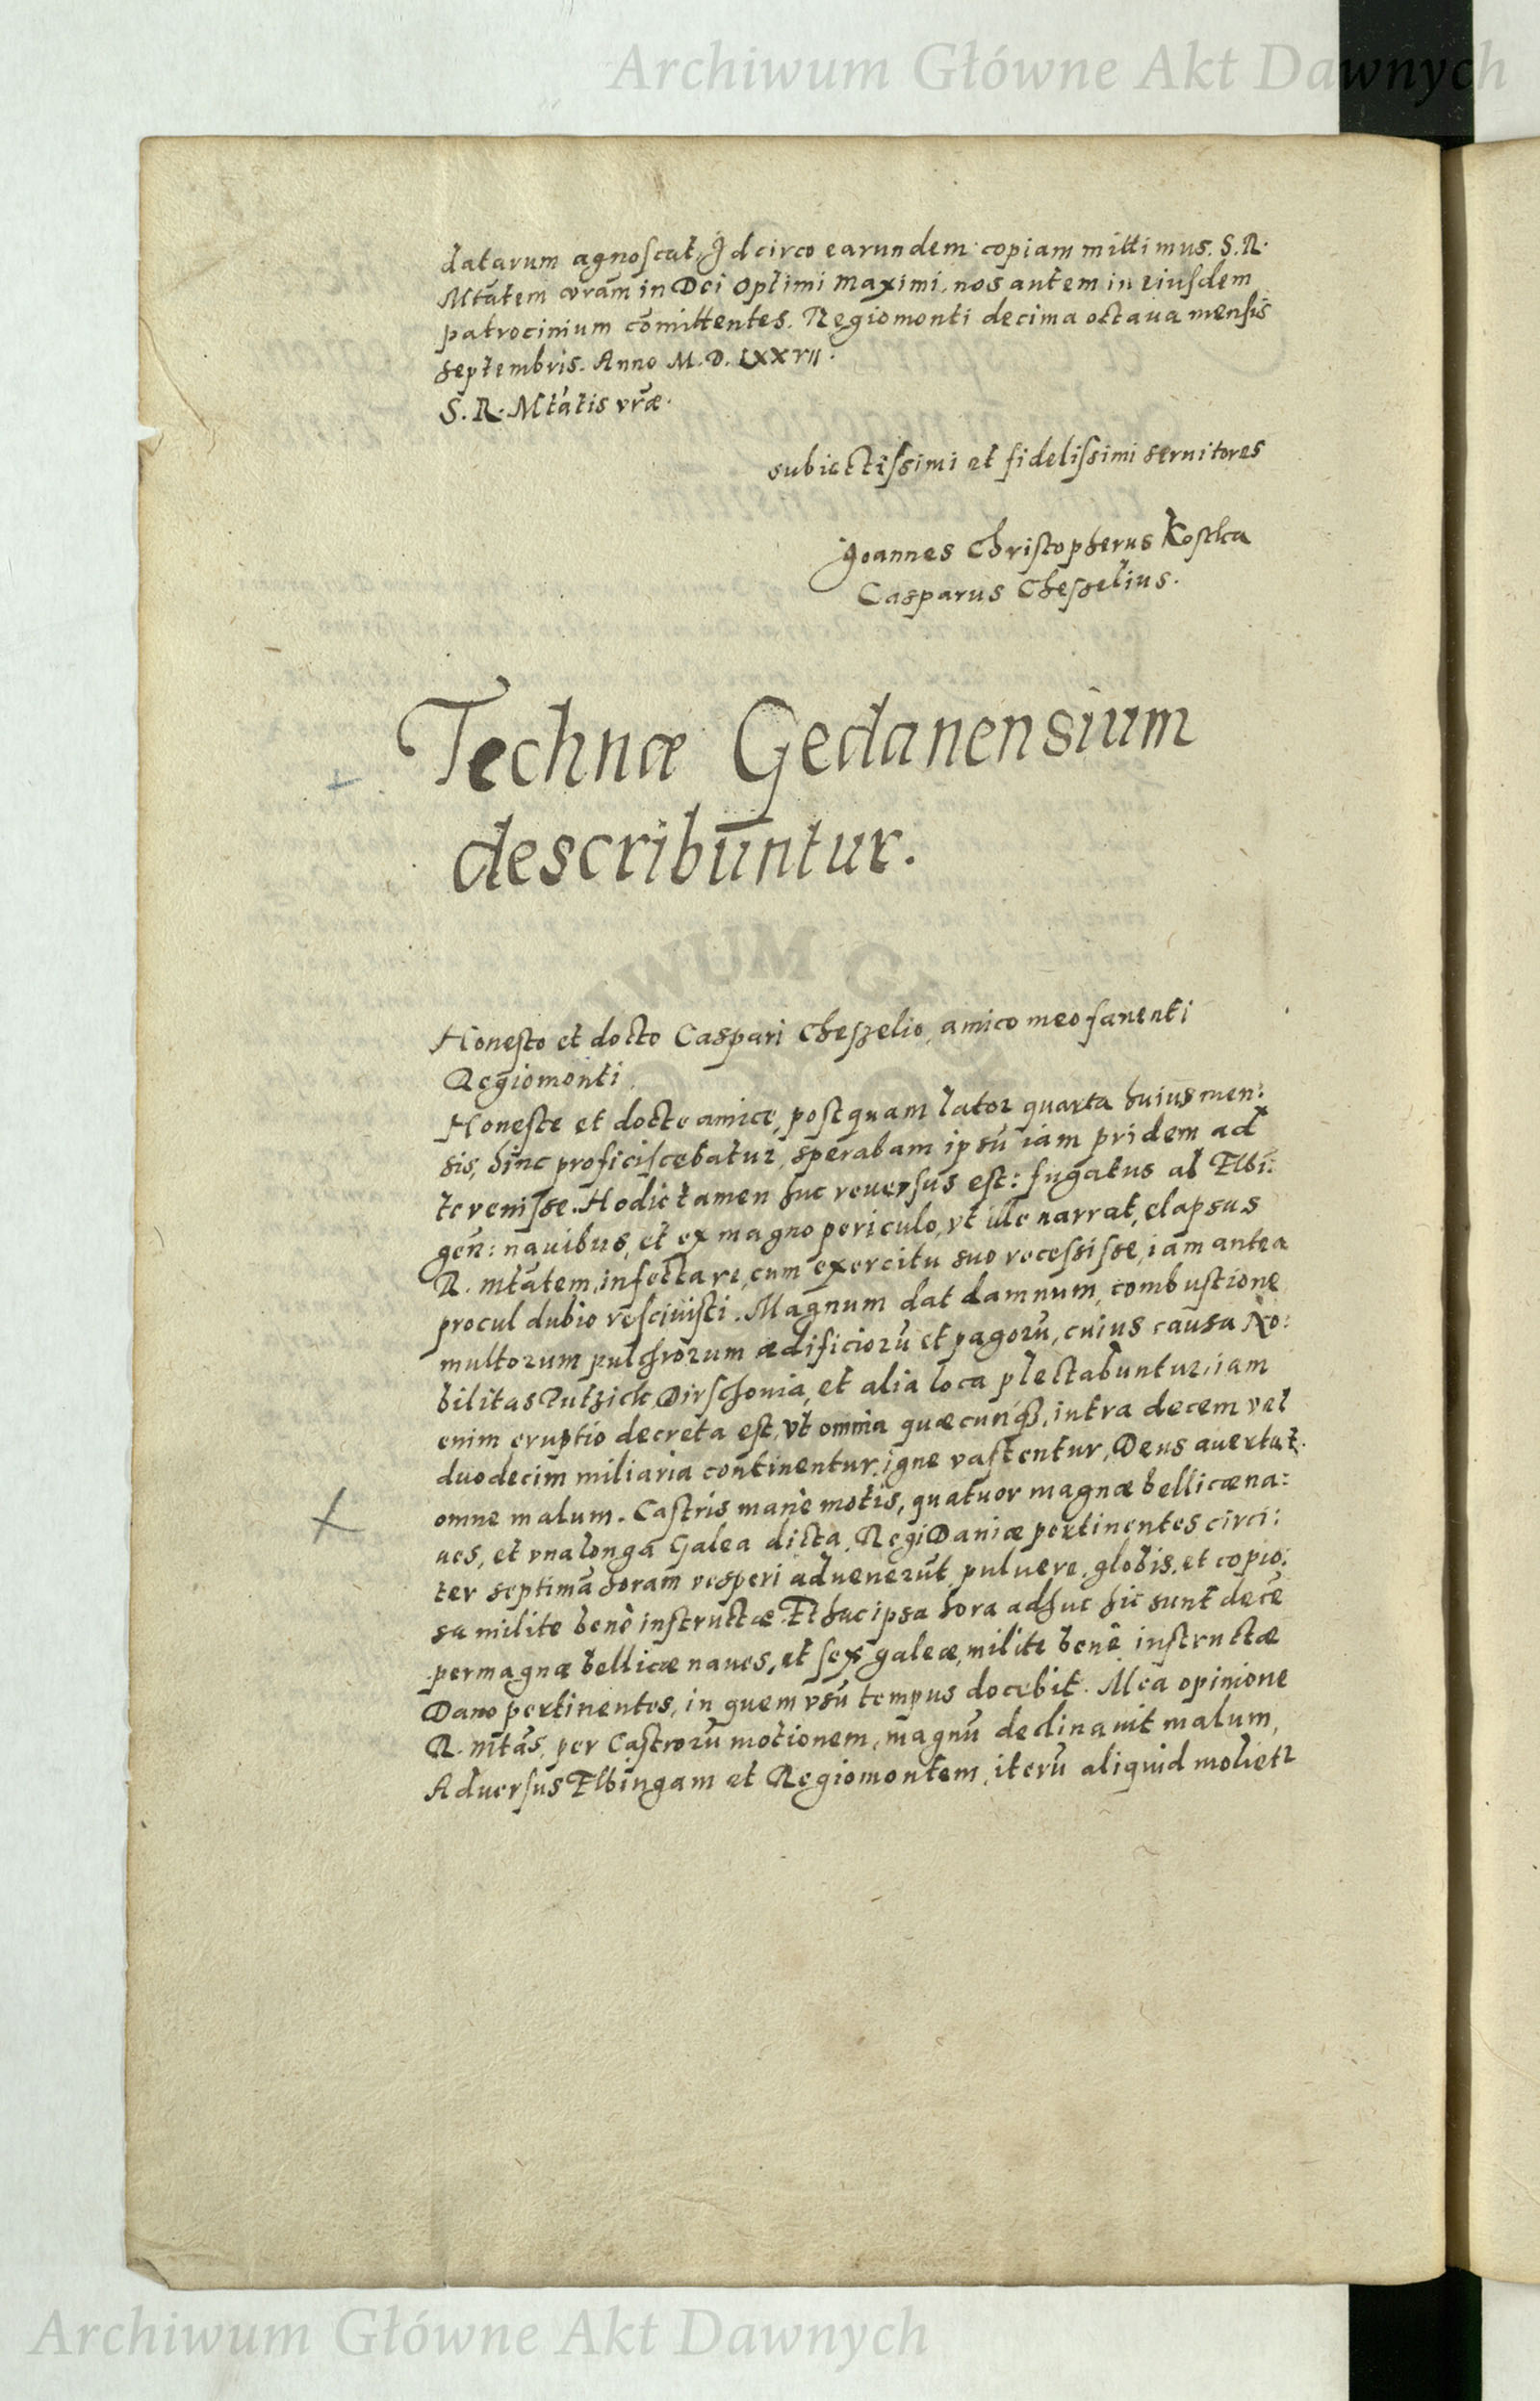 Archiwum Główne Akt Dawnych
datarum agnoscat, Idcirco earundem copiam mittimus. S. R.
Mtatem coram in Dei Optimi Maximi, nos autem in eiusdem
patrocinium comittentes. Regiomonti decima octaua mensis
Septembris. Anno M. D. LXXVII.
S. R. Mtatis vræ.
subiectissimi et fidelissimi seruitores
Joannes Christopherus Kostka
Casparus Chesselius.
Technæ Gedanensium
describuntur.
Honesto et docto Caspari Cheszelio, amico meo fauenti
Regiomonti.
Honeste et docte amice, postquam lator quarta huius men:
sis, hinc proficiscebatur, sperabam ipsū iam pridem ad
te venisse. Hodie tamen huc reuersus est: fugatus ab Elbi:
gen: nauibus, et ex magno periculo, vt ille narrat, elapsus
R. mtatem, infectare, cum exercitu suo recessisse, iam antea
procul dubio resciuisti. Magnum dat damnum, combustione
multorum pulchrorum ædificiorū et pagorū, cuius causa No:
bilitas Putzick, Dirschouia, et alia loca plectabuntur, iam
enim eruptio decreta est, vt omnia quæcunq3, intra decem vel
duodecim miliaria continentur, igne vastentur, Deus auertat
omne malum. Castris manè motis, quatuor magnæ bellicæ na:
ues, et vna longa Galea dicta, Regi Daniæ pertinentes circi:
ter septimā horam vesperi aduenerūt, puluere, globis, et copio:
sa milite benè instructæ. Et hac ipsa hora adhuc hic sunt decē
permagnæ bellicæ naues, et sex galeæ, milite benè instructæ
Dano pertinentes, in quem vsū tempus docebit. Mea opinione
R. mtas, per Castrorū motionem, magnū declinauit malum,
Aduersus Elbingam et Regiomontem, iterū aliquid molietr
Archiwum Główne Akt Dawnych